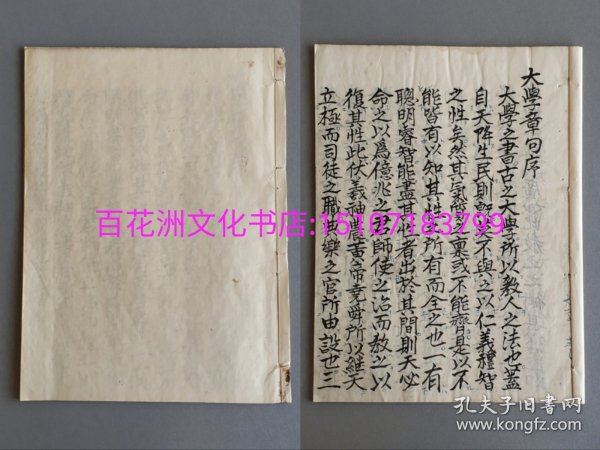 大學章句序
大學之書古之大學所以敎人之法也蓋
自天降生民則旣莫不與之以仁義禮智
之性矣然其氣質之稟或不能齊是以不
能皆有以知其性之所有而全之也一有
聰明睿智能盡其性者出於其間則天必
命之以爲億兆之君師使之治而敎之以
復其性此伏羲神農黃帝堯舜所以繼天
立極而司徒之職典樂之官所由設也三
百花洲文化书店:15107183799
孔夫子旧书网
www.kongfz.com